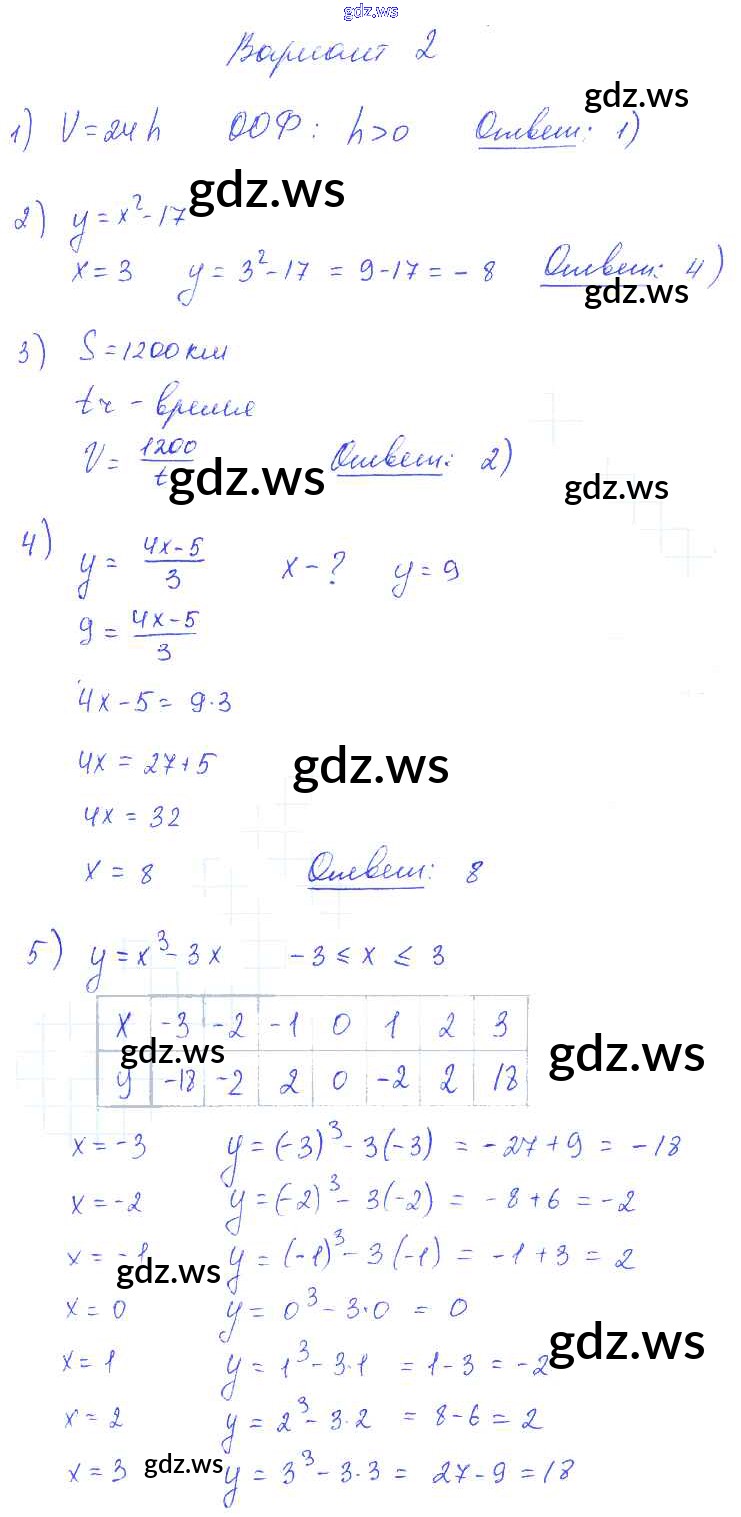 gdz.ws
Вариант 2
gdz.ws
1) V=24h ООФ: h>0 Ответ: 1)
gdz.ws
2) y=x²-17
x=3 y=3²-17=9-17=-8 Ответ: 4)
gdz.ws
3) S=1200км
tч - время
V=1200/t Ответ: 2)
gdz.ws
gdz.ws
4) y=(4x-5)/3 x-? y=9
9=(4x-5)/3
4x-5=9·3
4x=27+5
gdz.ws
4x=32
x=8 Ответ: 8
5) y=x³-3x -3≤x≤3
x -3 -2 -1 0 1 2 3
gdz.ws gdz.ws
y -18 -2 2 0 -2 2 18
x=-3 y=(-3)³-3(-3)=-27+9=-18
x=-2 y=(-2)³-3(-2)=-8+6=-2
x=-1 y=(-1)³-3(-1)=-1+3=2
gdz.ws
x=0 y=0³-3·0=0
gdz.ws
x=1 y=1³-3·1=1-3=-2
x=2 y=2³-3·2=8-6=2
x=3 gdz.ws y=3³-3·3=27-9=18